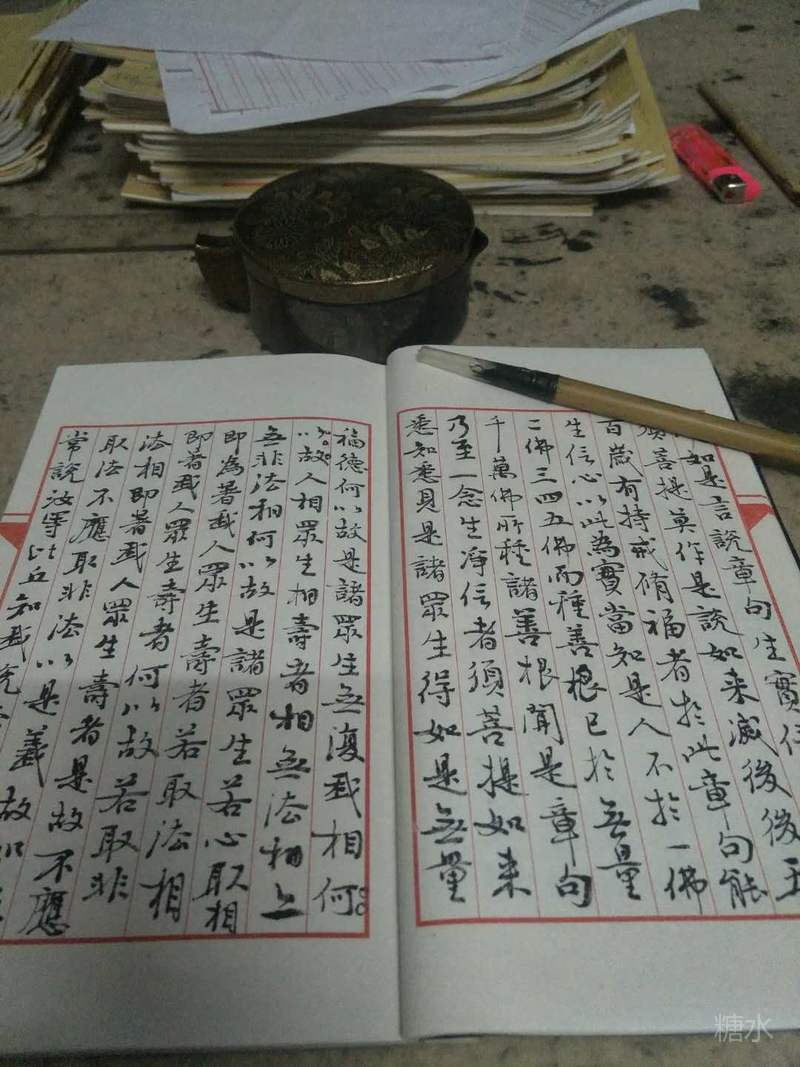 如是言說章句生實信
須菩提莫作是說如来滅後後五
百歲有持戒脩福者於此章句能
生信心以此為實當知是人不於一佛
二佛三四五佛而種善根已於無量
千萬佛所種諸善根聞是章句
乃至一念生淨信者須菩提如来
悉知悉見是諸眾生得如是無量
福德何以故是諸眾生無復我相何
以故人相眾生相壽者相無法相上
無非法相何以故是諸眾生若心取相
即為著我人眾生壽者若取法相
即著我人眾生壽者何以故若取非
法相即著我人眾生壽者是故不應
取法不應取非法以是義故如
常說汝等比丘知我說
糖水